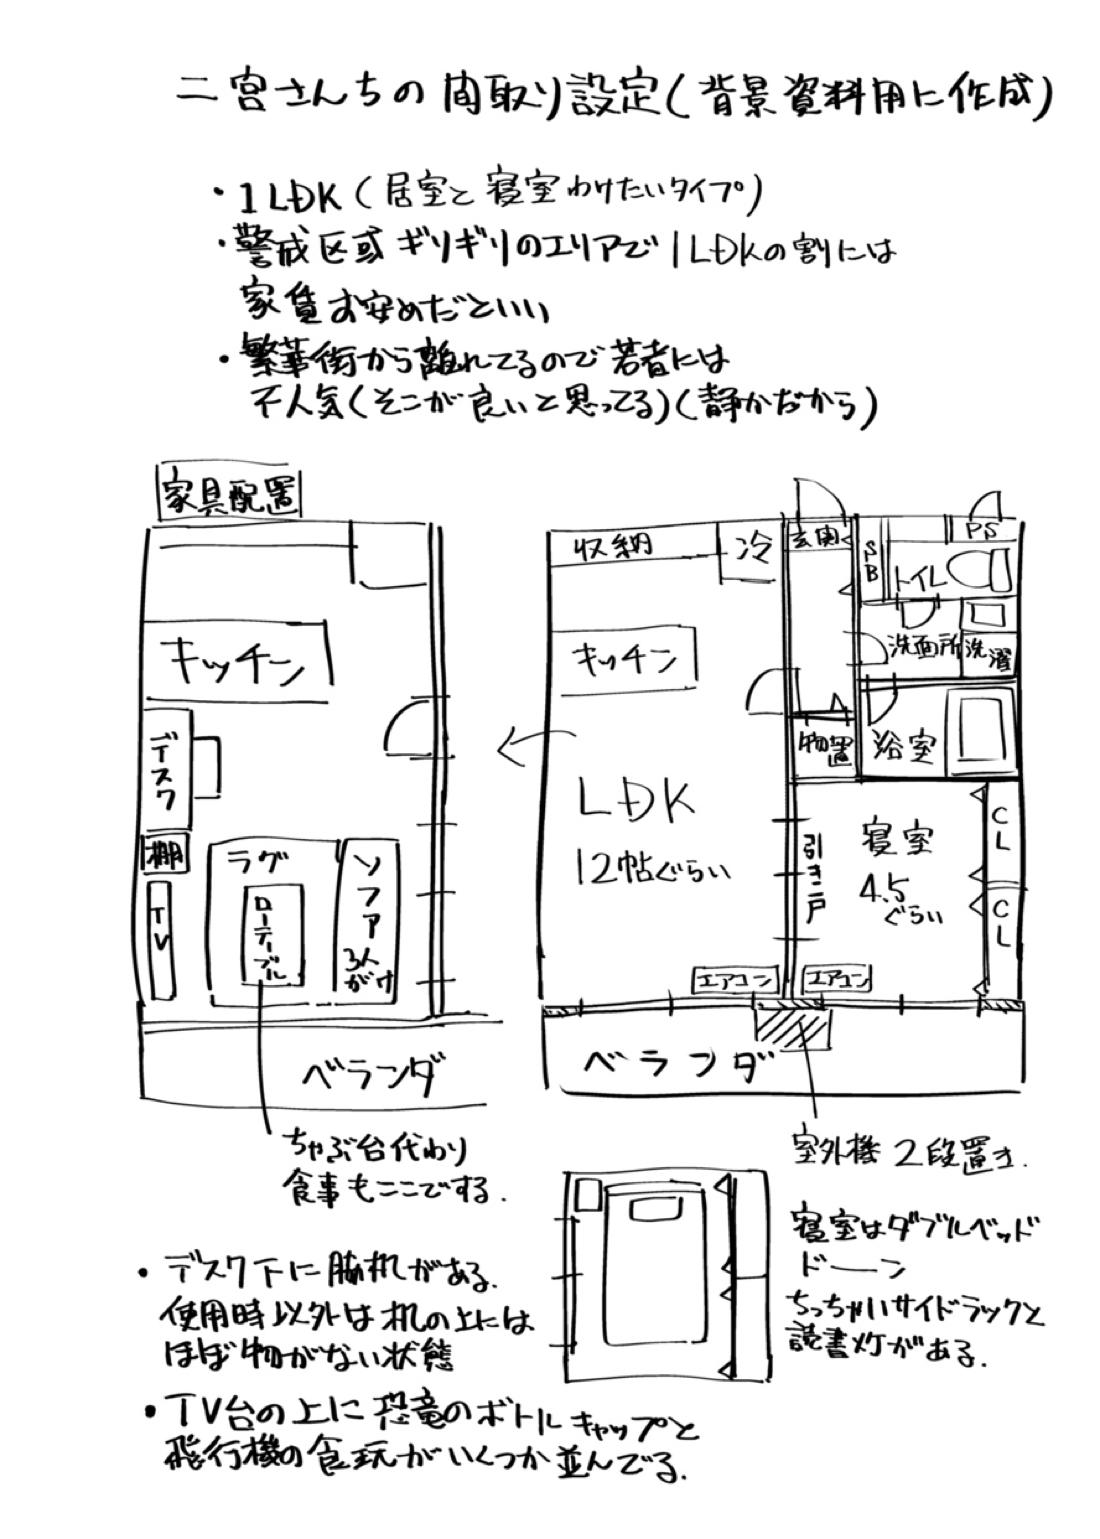 二宮さんちの間取り設定(背景資料用に作成)
・1LDK(居室と寝室わけたいタイプ)
・警戒区域ギリギリのエリアで1LDKの割には
家賃お安めだといい
・繁華街から離れてるので若者には
不人気(そこが良いと思ってる)(静かだから)
家具配置
キッチン
デスク
棚
TV
ラグ
ローテーブル
ソファ
3人がけ
ベランダ
ちゃぶ台代わり
食事もここでする.
収納
冷
玄関
SB
PS
トイレ
洗面所
洗濯
キッチン
物置
浴室
LDK
12帖ぐらい
引き戸
寝室
4.5
ぐらい
CL
CL
エアコン
エアコン
ベランダ
室外機 2段置き.
寝室はダブルベッド
ドーン
ちっちゃいサイドラックと
読書灯がある.
・デスク下に脇机がある.
使用時以外は机の上には
ほぼ物がない状態
・TV台の上に恐竜のボトルキャップと
飛行機の食玩がいくつか並んでる.